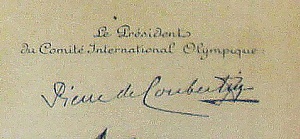 Le Président
du Comité International Olympique
Pierre de Coubertin